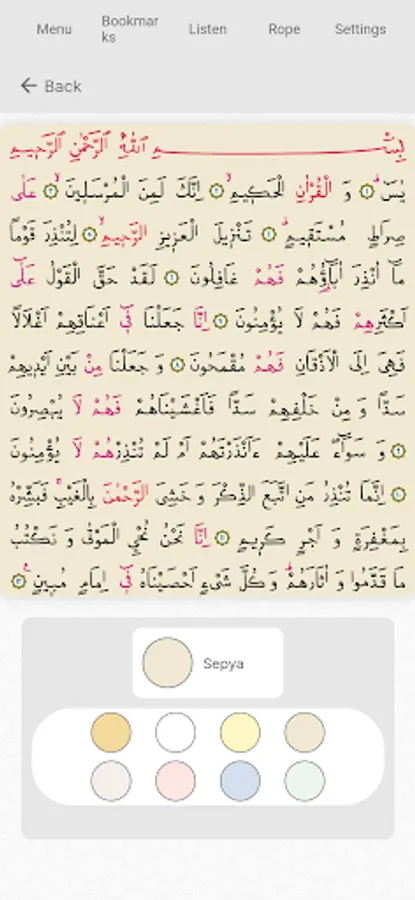 Menu
Bookmar
ks
Listen
Rope
Settings
Back
بِسْمِ اللّٰهِ الرَّحْمٰنِ الرَّحٖيمِ
يٰسٓ ١ وَ الْقُرْاٰنِ الْحَكٖيمِ ٢ اِنَّكَ لَمِنَ الْمُرْسَلٖينَ ٣ عَلٰى
صِرَاطٍ مُسْتَقٖيمٍ ٤ تَنْزٖيلَ الْعَزٖيزِ الرَّحٖيمِ ٥ لِتُنْذِرَ قَوْمًا
مَٓا اُنْذِرَ اٰبَٓاؤُ۬هُمْ فَهُمْ غَافِلُونَ ٦ لَقَدْ حَقَّ الْقَوْلُ عَلٰٓى
اَكْثَرِهِمْ فَهُمْ لَا يُؤْمِنُونَ ٧ اِنَّا جَعَلْنَا فٖٓى اَعْنَاقِهِمْ اَغْلَالًا
فَهِىَ اِلَى الْاَذْقَانِ فَهُمْ مُقْمَحُونَ ٨ وَ جَعَلْنَا مِنْ بَيْنِ اَيْدٖيهِمْ
سَدًّا وَ مِنْ خَلْفِهِمْ سَدًّا فَاَغْشَيْنَاهُمْ فَهُمْ لَا يُبْصِرُونَ
٩ وَ سَوَٓاءٌ عَلَيْهِمْ ءَاَنْذَرْتَهُمْ اَمْ لَمْ تُنْذِرْهُمْ لَا يُؤْمِنُونَ
١٠ اِنَّمَا تُنْذِرُ مَنِ اتَّبَعَ الذِّكْرَ وَ خَشِىَ الرَّحْمٰنَ بِالْغَيْبِ فَبَشِّرْهُ
بِمَغْفِرَةٍ وَ اَجْرٍ كَرٖيمٍ ١١ اِنَّا نَحْنُ نُحْيِ الْمَوْتٰى وَ نَكْتُبُ
مَا قَدَّمُوا وَ اٰثَارَهُمْ وَ كُلَّ شَىْءٍ اَحْصَيْنَاهُ فٖٓى اِمَامٍ مُبٖينٍ ١٢
Sepya